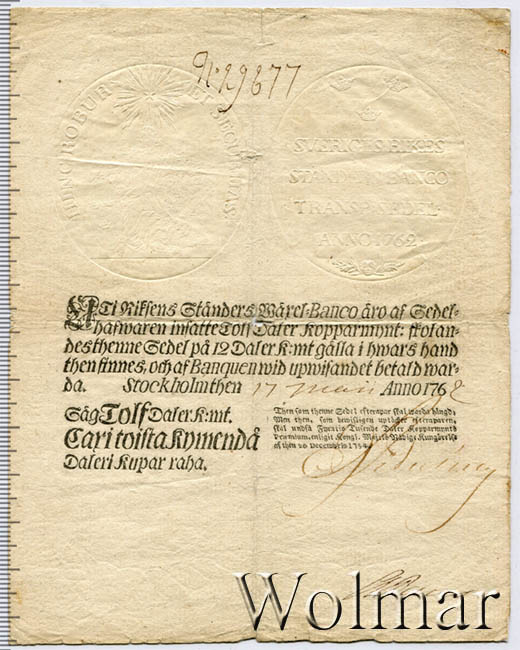 N: 29877
HINC ROBUR ET SECURITAS
SVERIGES RIKES
STÄNDERS BANCO
TRANSP. SEDEL
ANNO 1762
ATi Riksens Ständers Wäxel-Banco äro af Sedel-
hafwaren insatte Tolf Daler Kopparmynt: skolan-
des thenne Sedel på 12 Daler K:mt gälla i hwars hand
then finnes, och af Banquen wid upwisandet betald war-
da. Stockholm then 17 Maii Anno 1762
Säg Tolf Daler K:mt.
Caxi toista Kymendä
Daleri Kupar raha.
Then som thenne Sedel efterapar skal warda hängd;
Men then, som bewisligen uptäcker efteraparen,
skal undfå Fyratio Tusende Daler Kopparmynt
Præmium, enligit Kongl. Maj:ts Nådige Kungörelse
af then
Wolmar